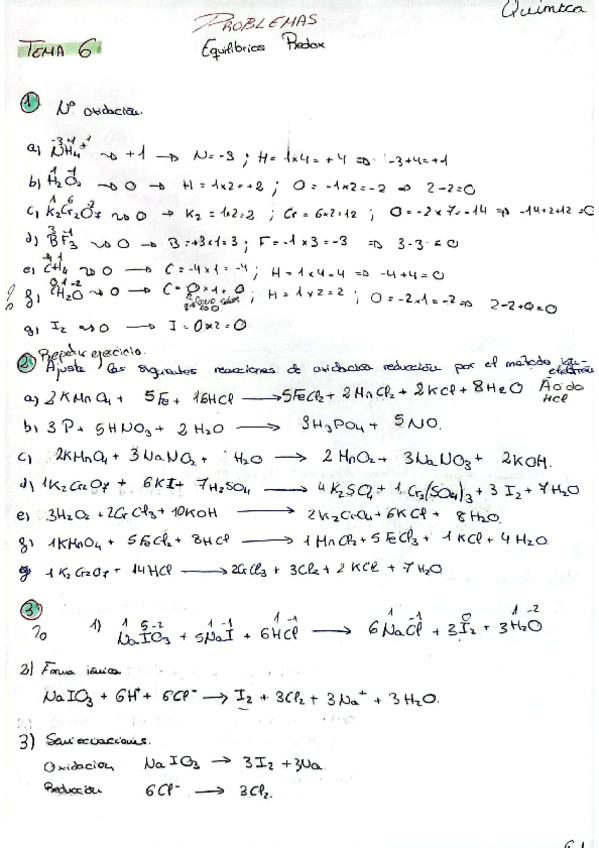 Química
PROBLEMAS
TEMA 6 Equilibrios Redox
1 Nº oxidación.
a) NH4 -3 +1 + ⇝ +1 → N = -3 ; H = 1x4 = +4 ⇒ -3+4=+1
b) H2O2 1 -1 ⇝ 0 → H = 1x2 = +2 ; O = -1x2 = -2 ⇒ 2-2=0
c) K2Cr2O7 1 6 -2 ⇝ 0 → K2 = 1x2 = 2 ; Cr = 6x2=12 ; O = -2x7 = -14 ⇒ -14+2+12=0
d) BF3 3 -1 ⇝ 0 → B = +3x1 = 3 ; F = -1x3 = -3 ⇒ 3-3 = 0
e) CH4 -4 1 ⇝ 0 → C = -4x1 = -4 ; H = 1x4 = 4 ⇒ -4+4=0
f) CH2O 0 1 -2 ⇝ 0 → C = 0x1 = 0 ; H = 1x2 = 2 ; O = -2x1 = -2 ⇒ 2-2+0=0
g) I2 ⇝ 0 → I = 0x2 = 0
Repetir ejercicio.
2 Ajusta las siguientes reacciones de oxidación reducción por el método ión-electrón
a) 2KMnO4 + 5Fe + 16HCl → 5FeCl2 + 2MnCl2 + 2KCl + 8H2O Ácido HCl
b) 3P + 5HNO3 + 2H2O → 3H3PO4 + 5NO.
c) 2KMnO4 + 3NaNO2 + H2O → 2MnO2 + 3NaNO3 + 2KOH.
d) 1K2Cr2O7 + 6KI + 7H2SO4 → 4K2SO4 + 1Cr2(SO4)3 + 3I2 + 7H2O
e) 3H2O2 + 2CrCl3 + 10KOH → 2K2CrO4 + 6KCl + 8H2O.
f) 1KMnO4 + 5FeCl2 + 8HCl → 1MnCl2 + 5FeCl3 + 1KCl + 4H2O
g) 1K2Cr2O7 + 14HCl → 2CrCl3 + 3Cl2 + 2KCl + 7H2O
3
1) NaIO3 1 5 -2 + 5NaI 1 -1 + 6HCl 1 -1 → 6NaCl 1 -1 + 3I2 0 + 3H2O 1 -2
2) Forma iónica
NaIO3 + 6H+ + 6Cl- → I2 + 3Cl2 + 3Na+ + 3H2O.
3) Semiecuaciones.
Oxidación NaIO3 → 3I2 + 3Na
Reducción 6Cl- → 3Cl2.